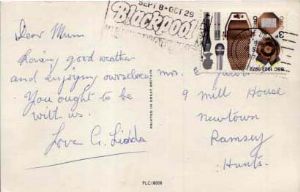 SEPT 8-OCT 29
Blackpool
Dear Mum
Having good weather
and enjoying ourselves
You ought to be
with us.
Love G.
Mrs.
9 Mill House
Newtown
Ramsey
Hunts.
PLC/8008